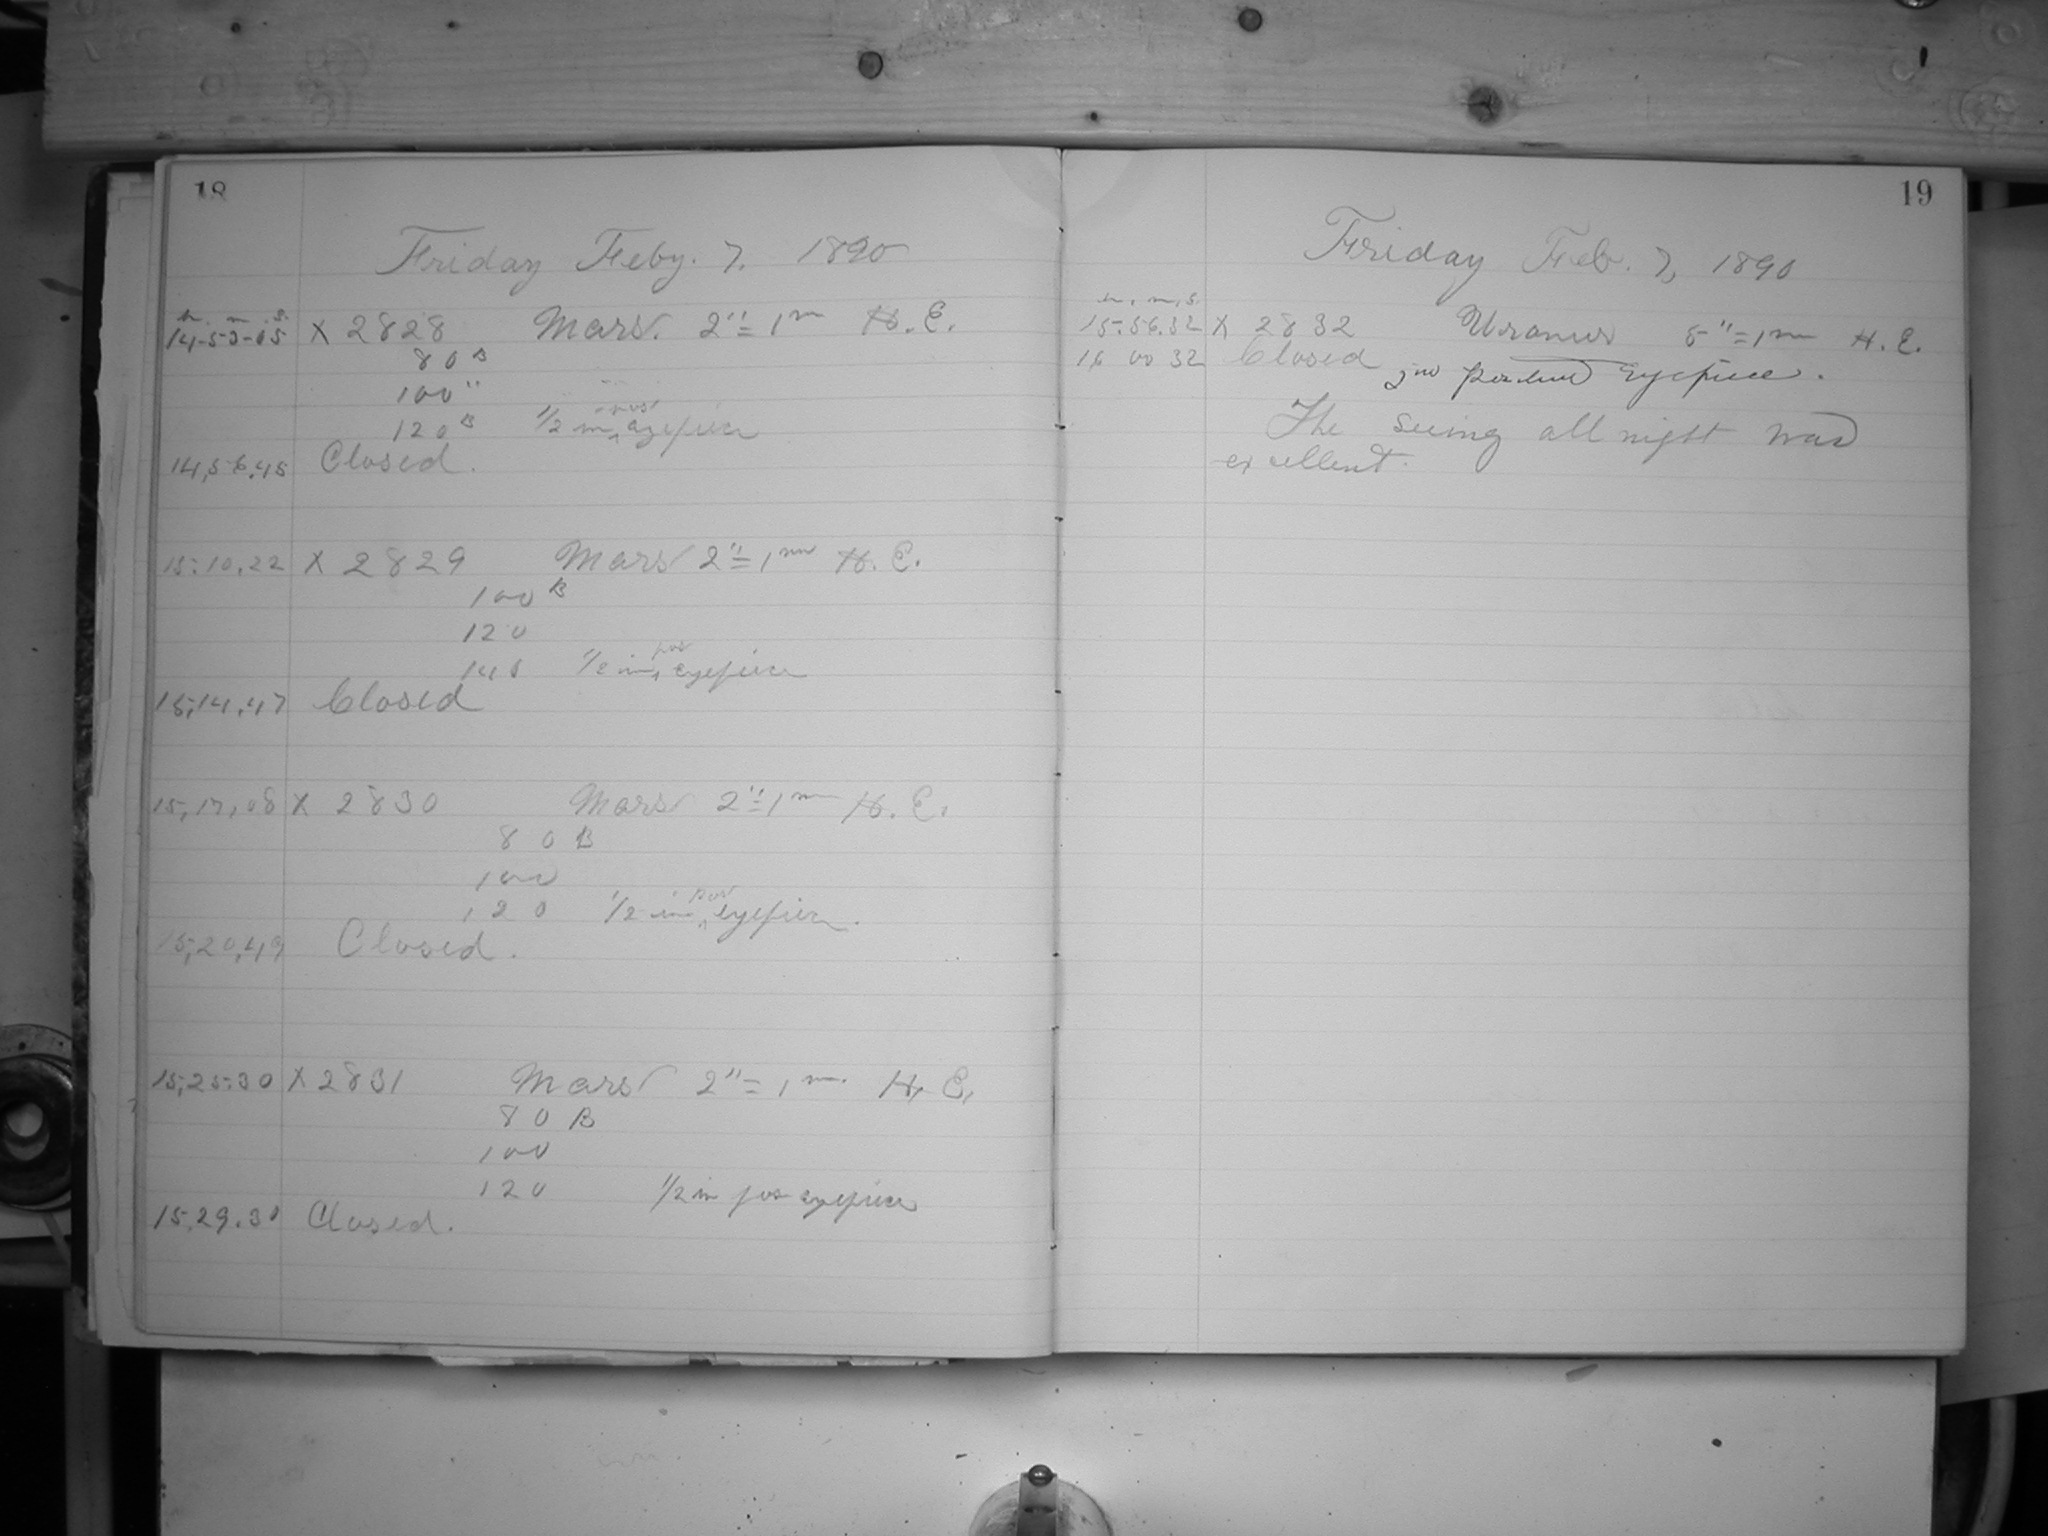 18
Friday Feby. 7, 1890
h. m. s.
14-53-05 X 2828 Mars. 2"=1m H.E.
80B
100"
120B 1/2 in pos eyepiece
14,56,45 Closed.
15:10,22 X 2829 Mars 2"=1m H.E.
100B
120
140 1/2 in pos eyepiece
15,14,47 Closed
15,17,08 X 2830 Mars 2"=1m H.E.
80B
100
120 1/2 in pos eyepiece.
15,20,49 Closed.
15,25:30 X 2831 Mars 2"=1m. H.E.
80B
100
120 1/2 in pos eyepiece
15,29.30 Closed.
19
Friday Feb. 7, 1890
h. m. s.
15:56.32 X 2832 Uranus 5"=1m H.E.
16 00 32 Closed positive Eyepiece.
The seeing all night was
excellent.